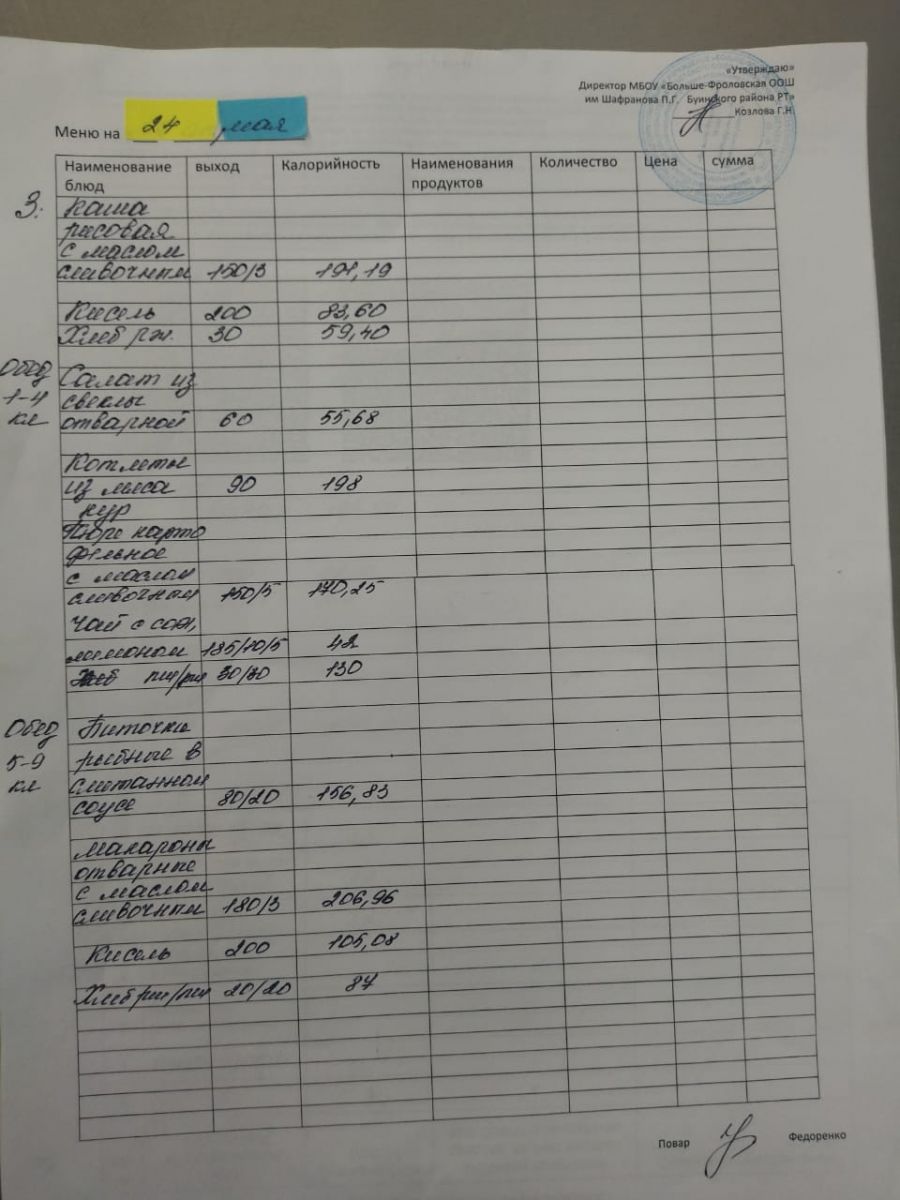 «Утверждаю»
Директор МБОУ «Больше-Фроловская ООШ
им Шафранова П.Г. Буинского района РТ»
Козлова Г.Н.
Меню на 24 мая
Наименование блюд выход Калорийность Наименования продуктов Количество Цена сумма
3. Каша
рисовая
с маслом
сливочным 150/3 191,19
Кисель 200 83,60
Хлеб рж. 30 59,40
Обед Салат из
1-4 свеклы
кл отварной 60 55,68
Котлеты
из мяса 90 198
кур
Пюре карто
фельное
с маслом
сливочным 150/5 170,25
Чай с сах,
лимоном 185/10/5 42
Хлеб пш/рж 30/30 130
Обед Биточки
5-9 рыбные в
кл сметанном
соусе 80/20 156,83
макароны
отварные
с маслом
сливочным 180/3 206,96
Кисель 200 105,08
Хлеб рж/пш 20/20 87
Повар Федоренко